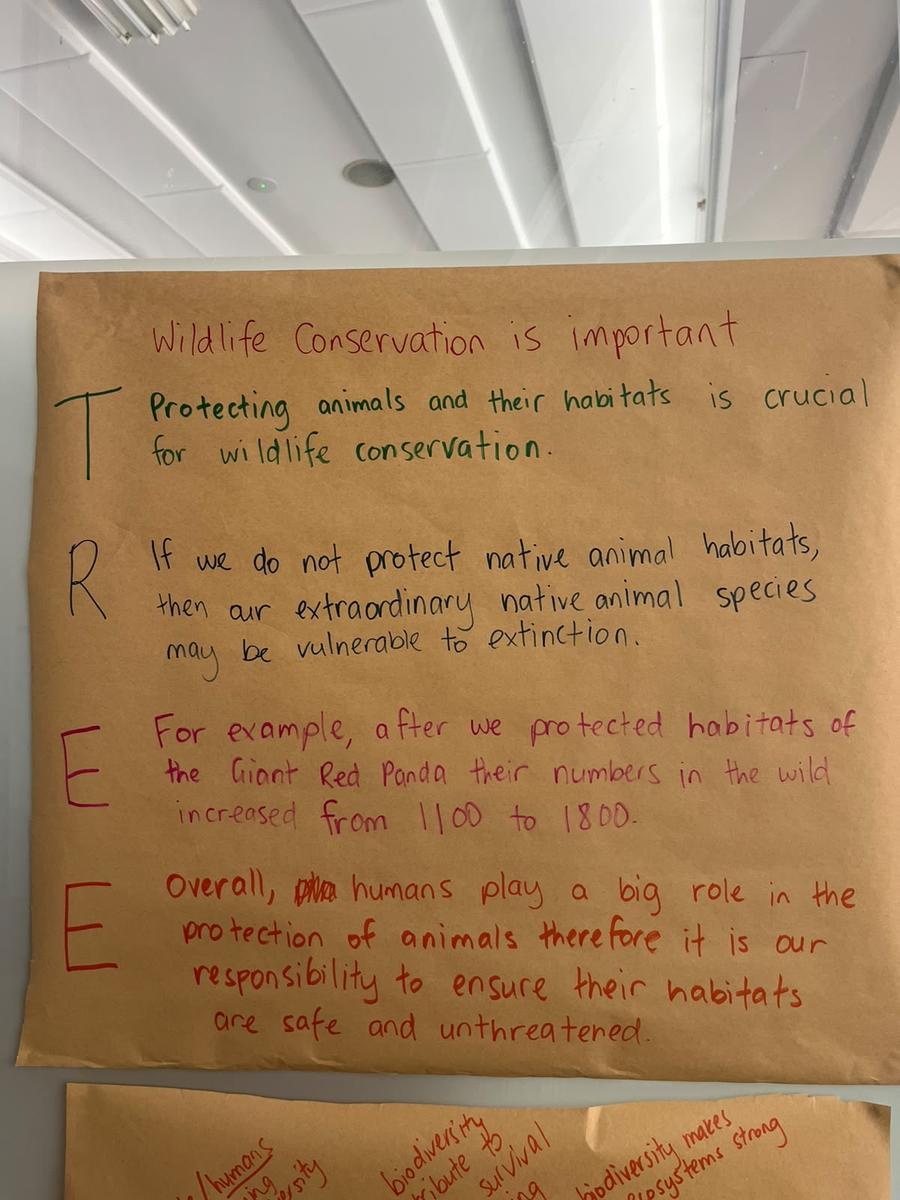 Wildlife Conservation is important
T Protecting animals and their habitats is crucial
for wildlife conservation.
R If we do not protect native animal habitats,
then our extraordinary native animal species
may be vulnerable to extinction.
E For example, after we protected habitats of
the Giant Red Panda their numbers in the wild
increased from 1100 to 1800.
E Overall, humans play a big role in the
protection of animals therefore it is our
responsibility to ensure their habitats
are safe and unthreatened.
/humans
biodiversity
to
survival
biodiversity makes
strong